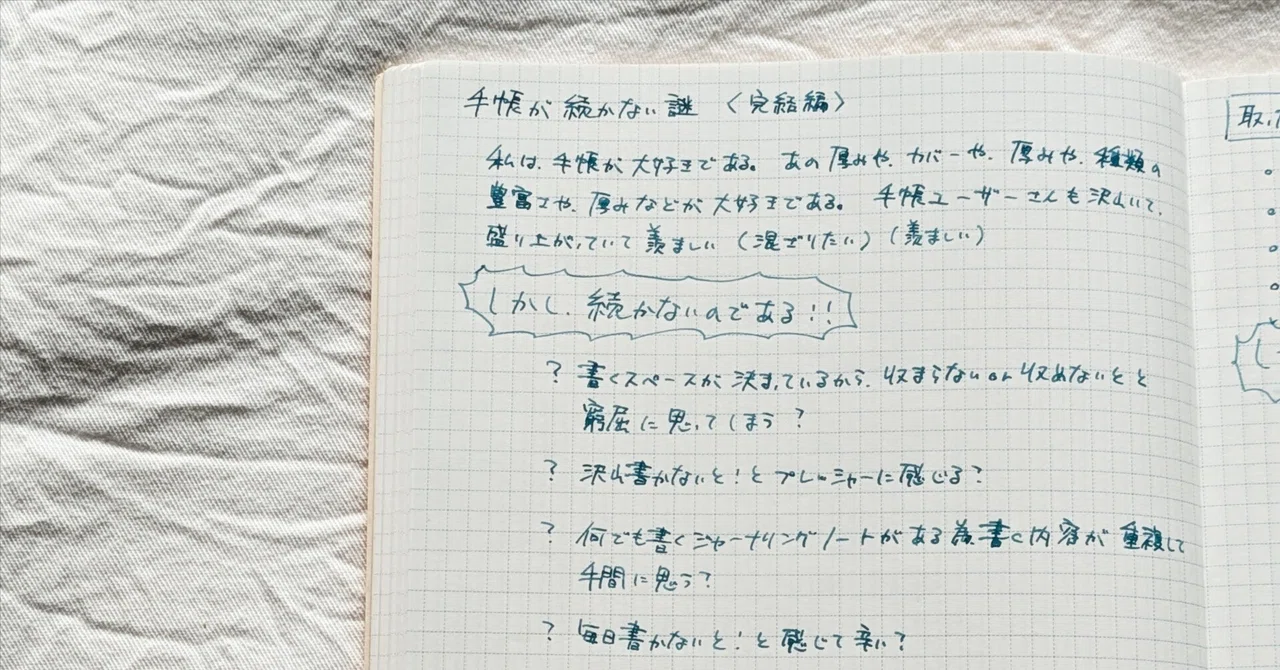 手帳が続かない謎 〈完結編〉
私は、手帳が大好きである。あの厚みや、カバーや、厚みや、種類の
豊富さや、厚みなどが大好きである。手帳ユーザーさんも沢山いて、
盛り上がっていて羨ましい（混ざりたい）（羨ましい）
しかし、続かないのである!!
? 書くスペースが決まっているから、収まらない or 収めないと と
窮屈に思ってしまう?
? 沢山書かないと!とプレッシャーに感じる?
? 何でも書くジャーナリングノートがある為、書く内容が重複して
手間に思う?
? 毎日書かないと!と感じて辛い?
取っ